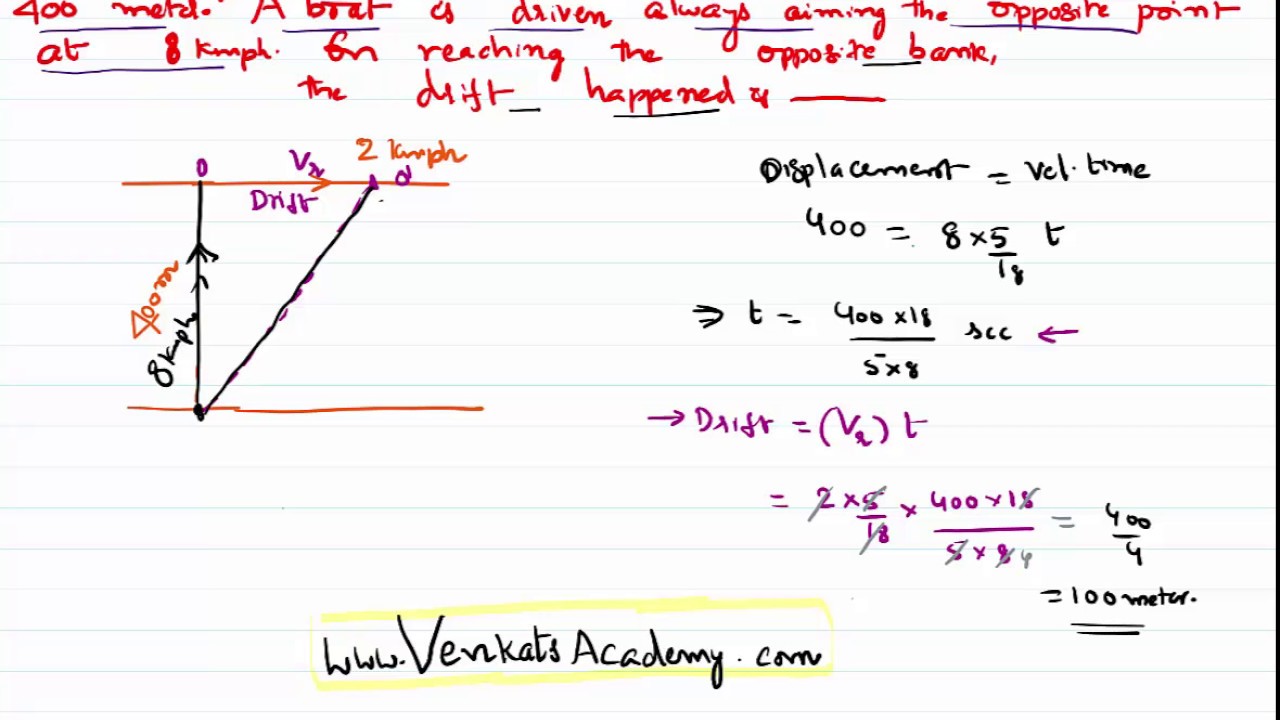 400 meter. A boat is driven always aiming the opposite point
at 8 kmph. On reaching the opposite bank,
the drift happened is ———
0 Vr 2 kmph d
Drift
400m
8 kmph
Displacement = vel. time
400 = 8×5/18 t
⇒ t = 400×18/5×8 sec ←
→ Drift = (Vr) t
= 2×5/18 × 400×18/5×8 4 = 400/4
= 100 meter.
www.VenkatsAcademy.com